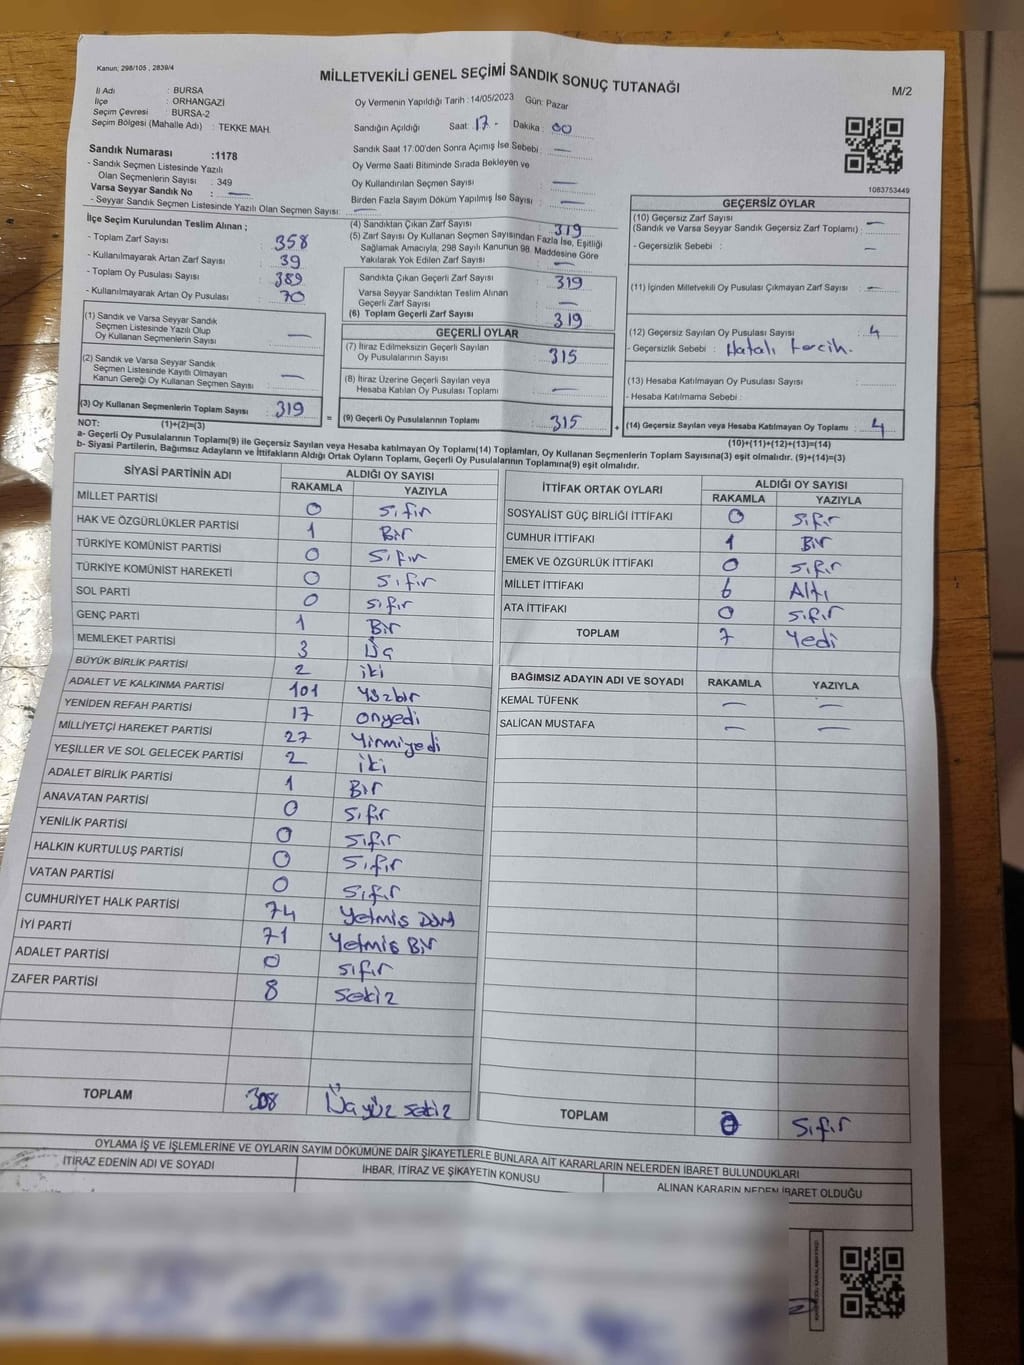 Kanun; 298/105 , 2839/4
MİLLETVEKİLİ GENEL SEÇİMİ SANDIK SONUÇ TUTANAĞI
M/2
İl Adı : BURSA
İlçe : ORHANGAZİ
Seçim Çevresi : BURSA-2
Seçim Bölgesi (Mahalle Adı) : TEKKE MAH.
Sandık Numarası :1178
- Sandık Seçmen Listesinde Yazılı
Olan Seçmenlerin Sayısı : 349
Varsa Seyyar Sandık No : —
- Seyyar Sandık Seçmen Listesinde Yazılı Olan Seçmen Sayısı: —
Oy Vermenin Yapıldığı Tarih :14/05/2023 Gün: Pazar
Sandığın Açıldığı Saat: 17 - Dakika : 00
Sandık Saat 17:00'den Sonra Açımış İse Sebebi : —
Oy Verme Saati Bitiminde Sırada Bekleyen ve
Oy Kullandırılan Seçmen Sayısı : —
Birden Fazla Sayım Döküm Yapılmış İse Sayısı : —
1083753449
İlçe Seçim Kurulundan Teslim Alınan ;
- Toplam Zarf Sayısı : 358
- Kullanılmayarak Artan Zarf Sayısı : 39
- Toplam Oy Pusulası Sayısı : 389
- Kullanılmayarak Artan Oy Pusulası : 70
(1) Sandık ve Varsa Seyyar Sandık
Seçmen Listesinde Yazılı Olup
Oy Kullanan Seçmenlerin Sayısı : —
(2) Sandık ve Varsa Seyyar Sandık
Seçmen Listesinde Kayıtlı Olmayan
Kanun Gereği Oy Kullanan Seçmen Sayısı : —
(3) Oy Kullanan Seçmenlerin Toplam Sayısı : 319
(1)+(2)=(3)
(4) Sandıktan Çıkan Zarf Sayısı : 319
(5) Zarf Sayısı Oy Kullanan Seçmen Sayısından Fazla İse, Eşitliği
Sağlamak Amacıyla, 298 Sayılı Kanunun 98. Maddesine Göre
Yakılarak Yok Edilen Zarf Sayısı : —
Sandıkta Çıkan Geçerli Zarf Sayısı : 319
Varsa Seyyar Sandıktan Teslim Alınan
Geçerli Zarf Sayısı : —
(6) Toplam Geçerli Zarf Sayısı : 319
GEÇERLİ OYLAR
(7) İtiraz Edilmeksizin Geçerli Sayılan
Oy Pusulalarının Sayısı : 315
(8) İtiraz Üzerine Geçerli Sayılan veya
Hesaba Katılan Oy Pusulası Toplamı : —
= (9) Geçerli Oy Pusulalarının Toplamı : 315
GEÇERSİZ OYLAR
(10) Geçersiz Zarf Sayısı
(Sandık ve Varsa Seyyar Sandık Geçersiz Zarf Toplamı) : —
- Geçersizlik Sebebi : —
(11) İçinden Milletvekili Oy Pusulası Çıkmayan Zarf Sayısı : —
(12) Geçersiz Sayılan Oy Pusulası Sayısı : 4
- Geçersizlik Sebebi : Hatalı tercih.
(13) Hesaba Katılmayan Oy Pusulası Sayısı :
- Hesaba Katılmama Sebebi :
+ (14) Geçersiz Sayılan veya Hesaba Katılmayan Oy Toplamı : 4
(10)+(11)+(12)+(13)=(14)
NOT:
a- Geçerli Oy Pusulalarının Toplamı(9) ile Geçersiz Sayılan veya Hesaba katılmayan Oy Toplamı(14) Toplamları, Oy Kullanan Seçmenlerin Toplam Sayısına(3) eşit olmalıdır. (9)+(14)=(3)
b- Siyasi Partilerin, Bağımsız Adayların ve İttifakların Aldığı Ortak Oyların Toplamı, Geçerli Oy Pusulalarının Toplamına(9) eşit olmalıdır.
SİYASİ PARTİNİN ADI ALDIĞI OY SAYISI
RAKAMLA YAZIYLA
MİLLET PARTİSİ 0 Sıfır
HAK VE ÖZGÜRLÜKLER PARTİSİ 1 Bir
TÜRKİYE KOMÜNİST PARTİSİ 0 Sıfır
TÜRKİYE KOMÜNİST HAREKETİ 0 Sıfır
SOL PARTİ 0 Sıfır
GENÇ PARTİ 1 Bir
MEMLEKET PARTİSİ 3 Üç
BÜYÜK BİRLİK PARTİSİ 2 iki
ADALET VE KALKINMA PARTİSİ 101 Yüzbir
YENİDEN REFAH PARTİSİ 17 onyedi
MİLLİYETÇİ HAREKET PARTİSİ 27 Yirmiyedi
YEŞİLLER VE SOL GELECEK PARTİSİ 2 iki
ADALET BİRLİK PARTİSİ 1 Bir
ANAVATAN PARTİSİ 0 Sıfır
YENİLİK PARTİSİ 0 Sıfır
HALKIN KURTULUŞ PARTİSİ 0 Sıfır
VATAN PARTİSİ 0 Sıfır
CUMHURİYET HALK PARTİSİ 74 Yetmiş Dört
İYİ PARTİ 71 Yetmiş Bir
ADALET PARTİSİ 0 Sıfır
ZAFER PARTİSİ 8 Sekiz
TOPLAM 308 Üçyüz sekiz
İTTİFAK ORTAK OYLARI ALDIĞI OY SAYISI
RAKAMLA YAZIYLA
SOSYALİST GÜÇ BİRLİĞİ İTTİFAKI 0 Sıfır
CUMHUR İTTİFAKI 1 Bir
EMEK VE ÖZGÜRLÜK İTTİFAKI 0 Sıfır
MİLLET İTTİFAKI 6 Altı
ATA İTTİFAKI 0 Sıfır
TOPLAM 7 Yedi
BAĞIMSIZ ADAYIN ADI VE SOYADI RAKAMLA YAZIYLA
KEMAL TÜFENK — —
SALİCAN MUSTAFA — —
TOPLAM 0 Sıfır
OYLAMA İŞ VE İŞLEMLERİNE VE OYLARIN SAYIM DÖKÜMÜNE DAİR ŞİKAYETLERLE BUNLARA AİT KARARLARIN NELERDEN İBARET BULUNDUKLARI
İTİRAZ EDENİN ADI VE SOYADI
İHBAR, İTİRAZ VE ŞİKAYETİN KONUSU
ALINAN KARARIN NEDEN İBARET OLDUĞU